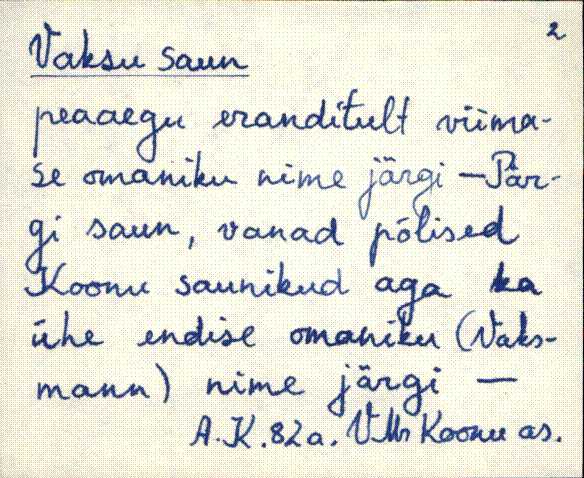 2
Vaksu saun
peaaegu eranditult viima-
se omaniku nime järgi — Pär-
gi saun, vanad põlised
Koonu saunikud aga ka
ühe endise omaniku (Vaks-
mann) nime järgi —
A.K. 82a. VMr Koonu as.